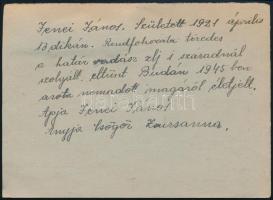 Jenei János. Született 1921 április
13 dikán. Rendfokozata tizedes
a határ vadász zlj 1 századnál
szolgált, eltünt Budán 1945 ben
azota nemadott magáról életjelt.
Apja Jenei János
Anyja Csögör Zsuzsanna.